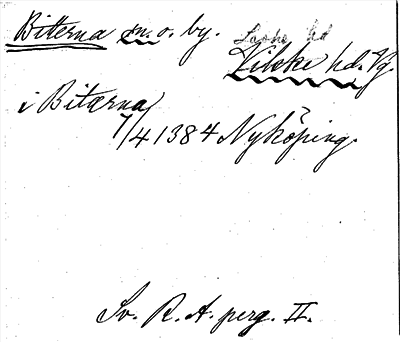 Bitterna sn. o. by.
Laske hd
Vilske hd. Vg.
i Bitærna
7/4 1384 Nyköping.
Sv. R. A. perg. II.